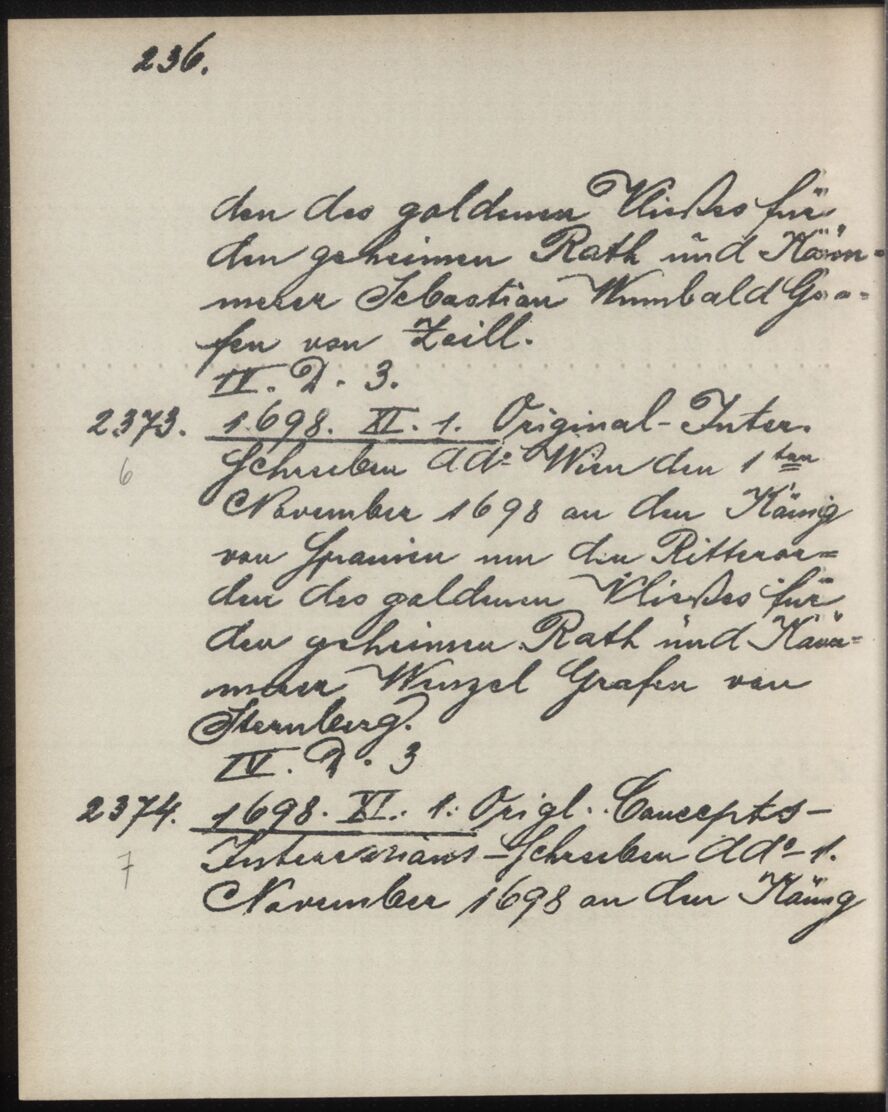 236.
den des goldenen Vließes für
den geheimen Rath und Käm-
merer Sebastian Wunibald Gra-
fen von Zeill.
IV. D. 3.
2373. 1698. XI. 1. Original-Inter.
6 Schreiben ddo Wien den 1ten
November 1698 an den König
von Spanien um den Ritteror=
den des goldenen Vließes für
den geheimen Rath und Käm=
merer Wenzel Grafen von
Sternberg.
IV. D. 3
2374. 1698. XI. 1. Origl. Concepts-
7 Intercessions-Schreiben ddo 1.
November 1698 an den König